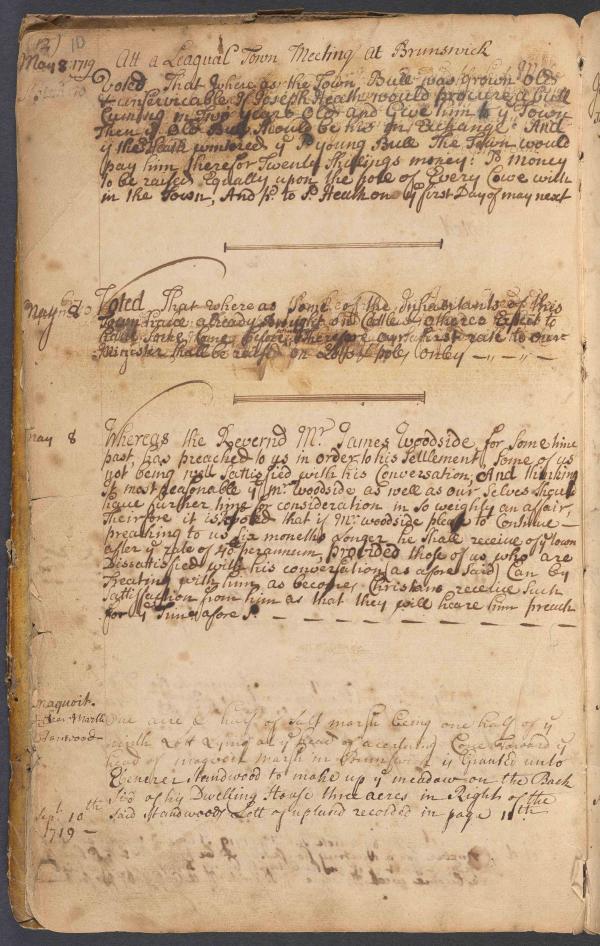 (12) 10
May 8 1719 Att a Leagual Town Meeting at Brunswick
Voted That where as the Town Bull was grown Old
& unservicable if Joseph Heath would procure a bull
Cuming in two years Old and Give him to yᵉ Town
Then yᵉ Old Bull should be his in Exchange And
if the Heath wintored yᵉ sᵈ young Bull The Town would
pay him therefor Twenty Shillings money: sᵈ money
to be raised Equally upon the pole of Every Cowe with
in the Town, And pᵈ to sᵈ Heath on yᵉ first Day of may next
May 8 Voted That where as Some of the Inhabitants of this
Town have already brought on Cattle & others Expect to
before Therefore our first rate to our
Minister Shall be raised on yᵉ pole, only
may 8 Whereas the Revernd Mʳ James Woodside for Some time
past, has preached to us in order to his Settlement, Some of us
not being well Sattisfied with his Conversation; And thinking
it most reasonable yᵗ mʳ woodside as well as our Selves Should
have further time for consideration in So weighty an affair,
Therefore it is Voted that if mʳ woodside please to Continue
preaching to us Six months longer he Shall receive of yᵉ town
after yᵉ rate of 40 per annum, provided those of us who are
Dissattisfied with his conversation (as afore Said) Can by
Treating with him as becomes Christians receive Such
Sattisfaction from him as that they will heare him preach
for yᵉ Time afore Sᵈ
maquoit.
One acre & half of Salt marsh being one half of yᵉ
Lott Lying at yᵉ head of a certain Cove toward yᵉ
head of maquoit marsh in Brunswick is Granted unto
Ebenezer Standwood to make up yᵉ meadow on the Back
Sid of his Dwelling House three acres in Right of the
Said Standwoods Lott of upland recorded in page 11ᵗʰ
Sepᵗ 10ᵗʰ
1719